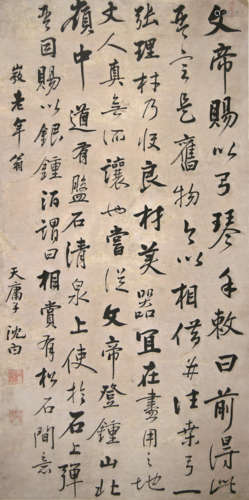 文帝賜以弓琴手敕曰前得此
琴言是舊物今以相借并往桑弓一
張理材乃快良材美器宜在盡用之地
丈人真無所讓也嘗從文帝登鍾山北
嶺中道有盤石清泉上使於石上彈
琴因賜以銀鍾酒謂曰相賞有松石間意
老年翁
天庸子沈白